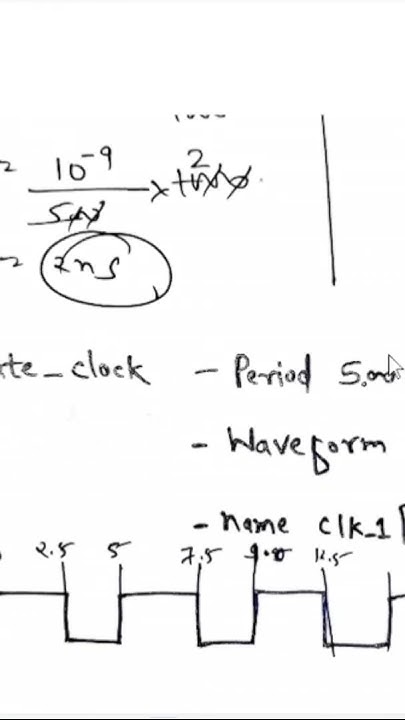 10⁻⁹
2
2ns
te_clock - Period 5.
- Waveform
- name clk_1 [
2.5 5 7.5 12.5